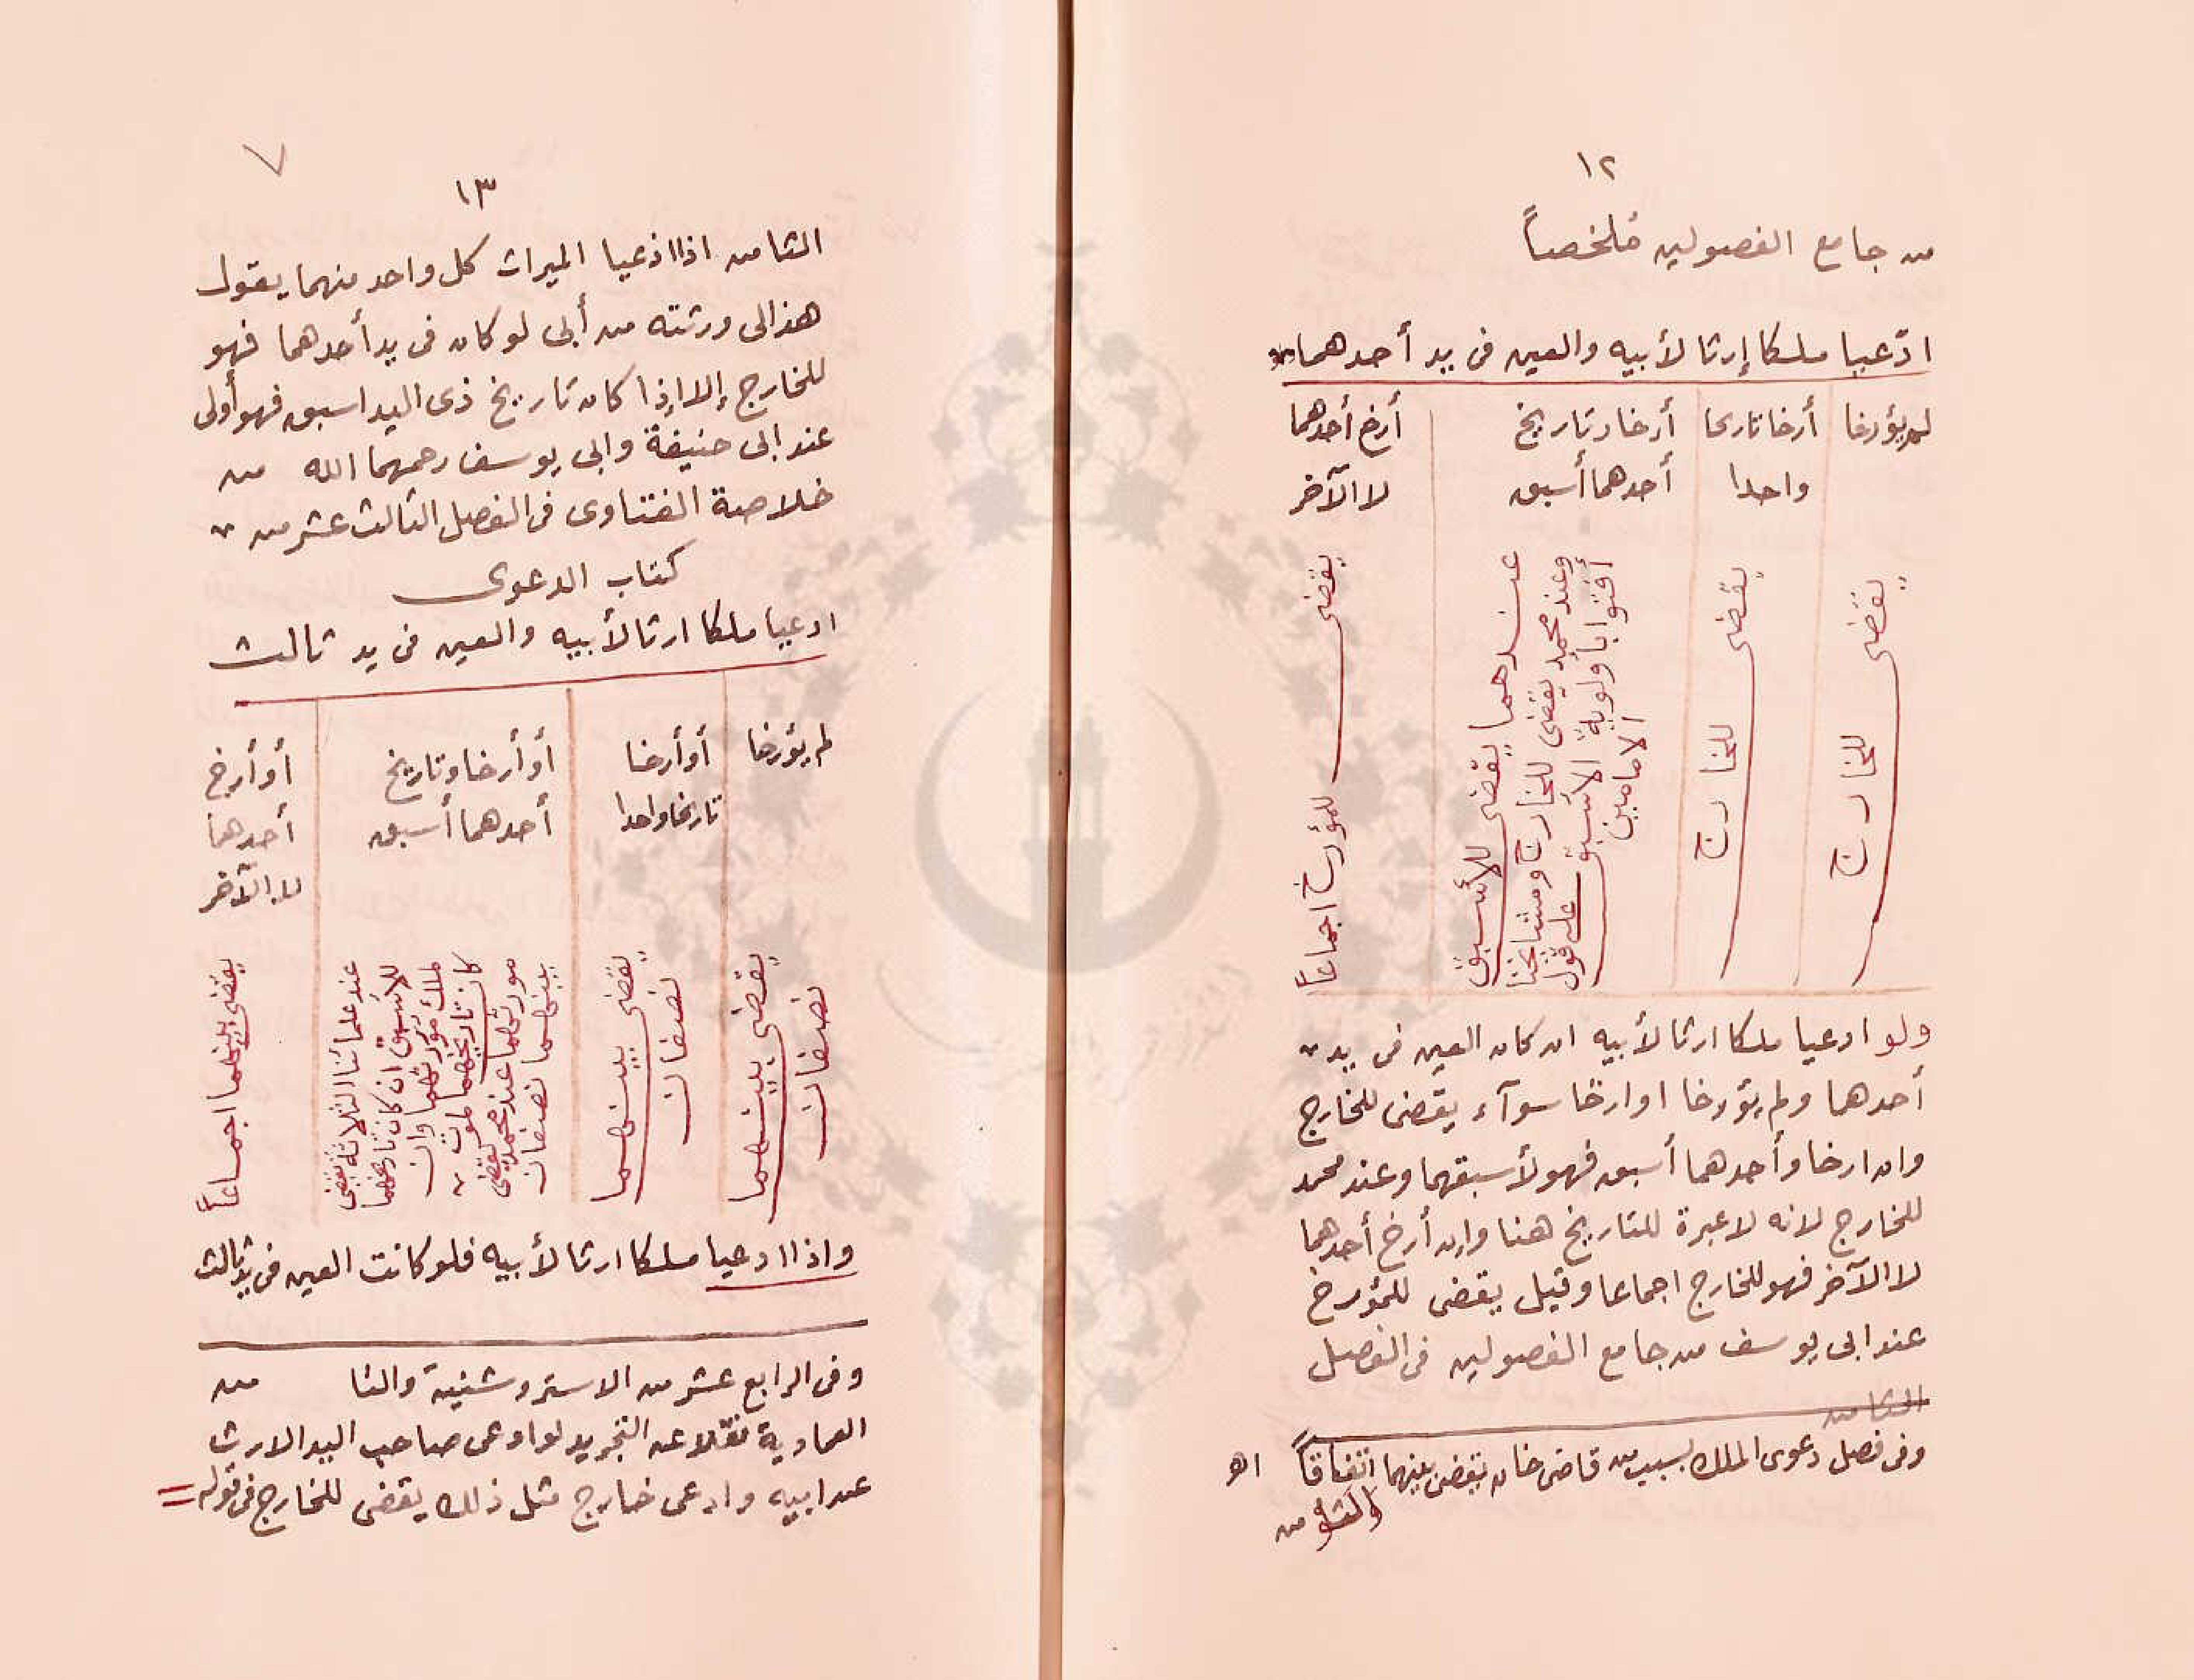 ١٢
من جامع الفصولين مُلخصاً
ادّعيا ملكا إرثا لأبيه والعين فى يد أحدهما
لم يؤرخا
أرخا تاريخا
واحدا
أرخا وتاريخ
أحدهما أسبق
أرخ أحدهما
لا الآخر
يقضى للخارج
يقضى للخارج
عندهما يقضى للأسبق
وعند محمد يقضى للخارج ومشايخنا
أفتوا بأولوية الأسبق على قول
الامامين
يقضى للمؤرخ اجماعاً
ولو ادعيا ملكا ارثا لأبيه ان كان العين فى يد
أحدهما ولم يؤرخا او ارخا سوآء يقضى للخارج
وان ارخا وأحدهما أسبق فهو لأسبقهما وعند محمد
للخارج لانه لا عبرة للتاريخ هنا وإن أرخ أحدهما
لا الآخر فهو للخارج اجماعا وقيل يقضى للمؤرخ
عند ابى يوسف من جامع الفصولين فى الفصل
الثامن
وفى فصل دعوى الملك بسبب من قاضى خان يقضى بينهما اتفاقاً اهـ
والثامن
٧
١٣
الثامن اذا ادعيا الميراث كل واحد منهما يقول
هذا لى ورثته من أبى لو كان فى يد أحدهما فهو
للخارج إلا إذا كان تاريخ ذى اليد اسبق فهو أولى
عند ابى حنيفة وابى يوسف رحمهما الله من
خلاصة الفتاوى فى الفصل الثالث عشر من
كتاب الدعوى
ادعيا ملكا ارثا لأبيه والعين فى يد ثالث
لم يؤرخا
أو أرخا
تاريخا واحدا
أو أرخا وتاريخ
أحدهما أسبق
أو أرخ
أحدهما
لا الآخر
يقضى بينهما
نصفان
يقضى بينهما
نصفان
عند علمائنا الثلاثة يقضى
للأسبق ان كان تاريخهما
لملك مورثهما وان
كان تاريخهما لموت
مورثهما عند محمد يقضى
بينهما نصفان
يقضى بينهما اجماعاً
واذا ادعيا ملكا ارثا لأبيه فلو كانت العين فى يد ثالث
وفى الرابع عشر من الاستروشنية والثامن
العمادية نقلا عن التجريد لو ادعى صاحب اليد الارث
عن ابيه وادعى خارج مثل ذلك يقضى للخارج فى قوله